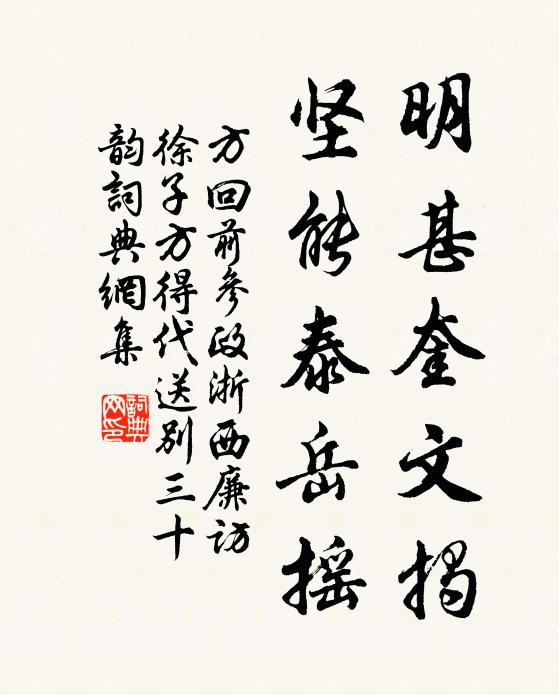 明甚奎文揭
坚能泰岳摇
方回前參政浙西廉访
徐子方得代送别三十
韵詞典網集
詞典
网印